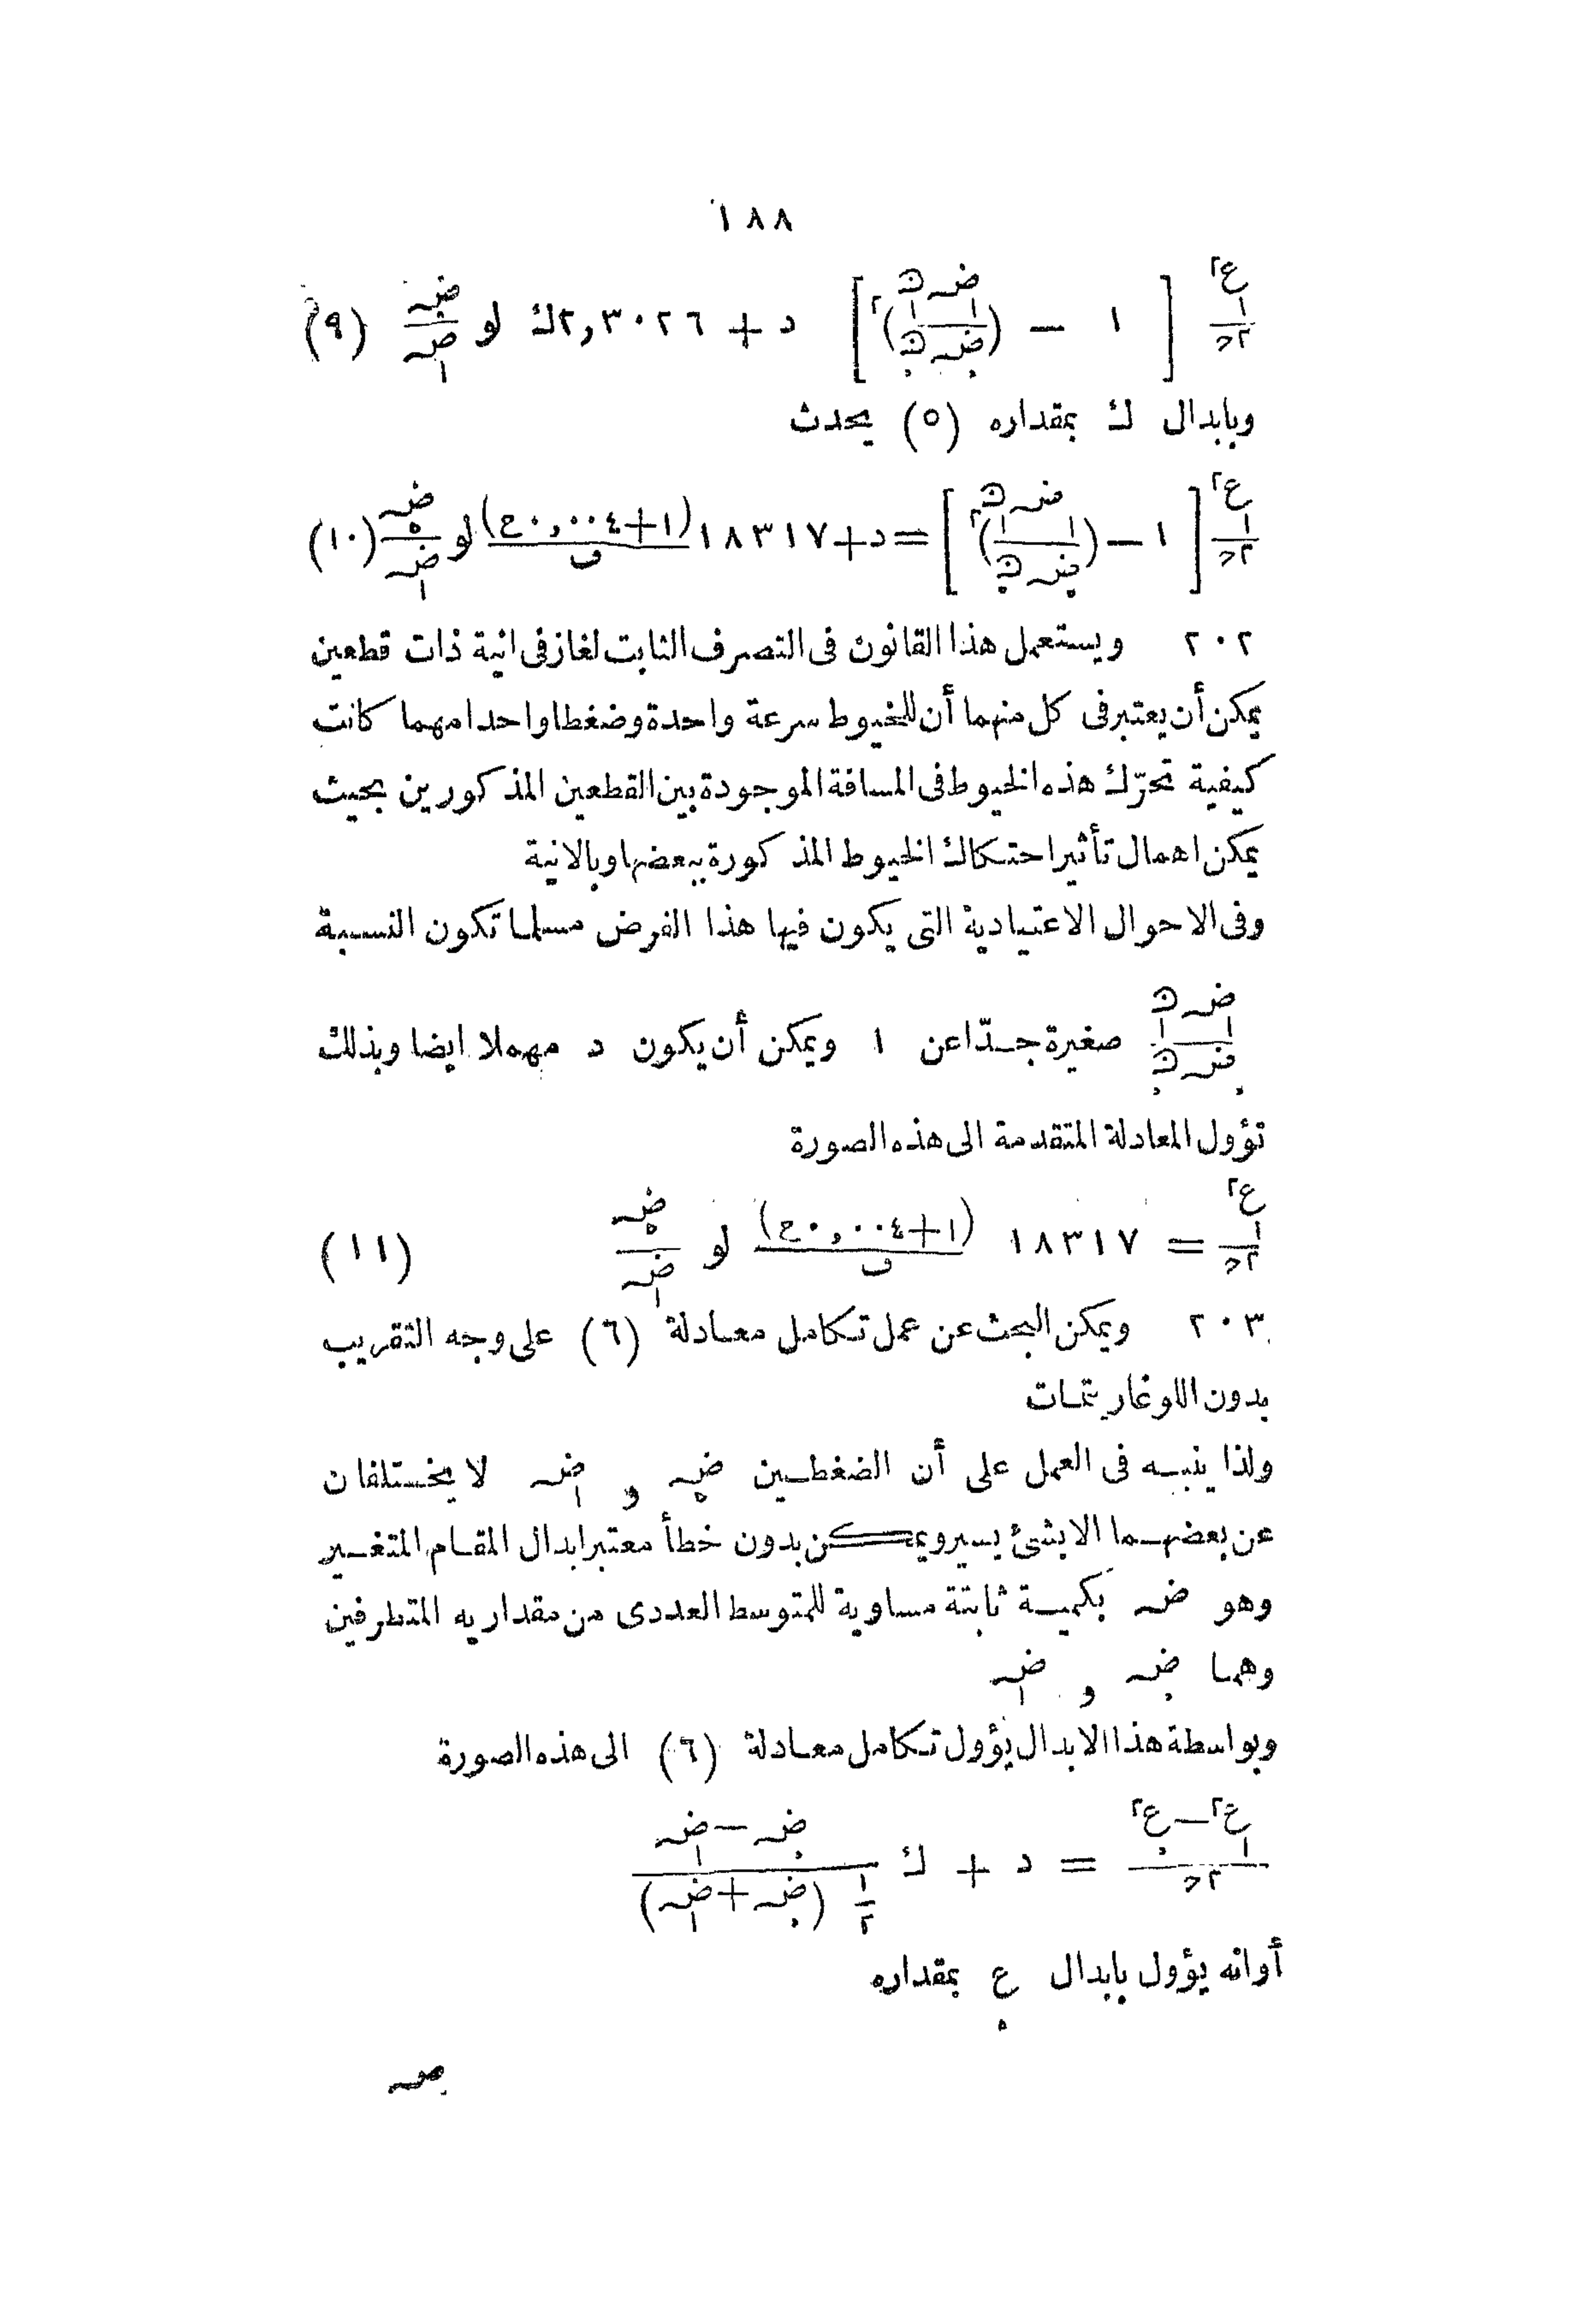 ١٨٨
ع١٢/٢ح [ ١ - (ضہ١ ں١/ضہ. ں.)٢ ] د + ٢,٣٠٢٦ك لو ضہ./ضہ١ (٩)
وبابدال ك بمقداره (٥) يحدث
ع١٢/٢ح [ ١ - (ضہ١ ں١/ضہ. ں.)٢ ] = د + ١٨٣١٧ (١+٠,٠٠٤ع)/ف لو ضہ./ضہ١ (١٠)
٢٠٢ ويستعمل هذا القانون فى التصرف الثابت لغاز فى انية ذات قطعين
يمكن أن يعتبر فى كل منهما أن للخيوط سرعة واحدة وضغطا واحدا مهما كانت
كيفية تحرّك هذه الخيوط فى المسافة الموجودة بين القطعين المذكورين بحيث
يمكن اهمال تأثير احتكاك الخيوط المذكورة ببعضها وبالانية
وفى الاحوال الاعتيادية التى يكون فيها هذا الفرض مسلما تكون النسبة
ضہ١ ں١/ضہ. ں. صغيرة جدّا عن ١ ويمكن أن يكون د مهملا ايضا وبذلك
تؤول المعادلة المتقدمة الى هذه الصورة
ع١٢/٢ح = ١٨٣١٧ (١+٠,٠٠٤ع)/ف لو ضہ./ضہ١ (١١)
٢٠٣ ويمكن البحث عن عمل تكامل معادلة (٦) على وجه التقريب
بدون اللوغاريتمات
ولذا ينبه فى العمل على أن الضغطين ضہ. و ضہ١ لا يختلفان
عن بعضهما الا بشئ يسير ويمكن بدون خطأ معتبر ابدال المقام المتغير
وهو ضہ بكمية ثابتة مساوية للمتوسط العددى من مقداريه المتطرفين
وهما ضہ. و ضہ١
وبواسطة هذا الابدال يؤول تكامل معادلة (٦) الى هذه الصورة
ع١٢ - ع.٢/٢ح = د + ك ضہ. - ضہ١/١/٢ (ضہ. + ضہ١)
أوانه يؤول بابدال ع. بمقداره